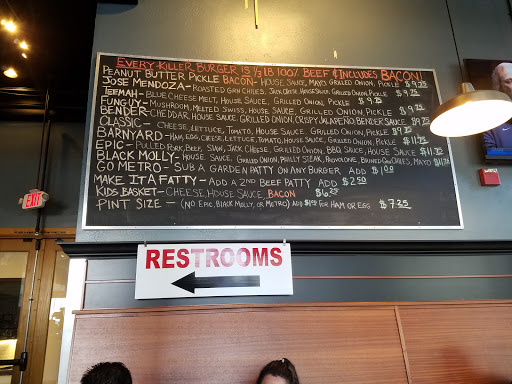 EVERY KILLER BURGER IS 1/3 LB 100% BEEF & INCLUDES BACON!
PEANUT BUTTER PICKLE BACON- HOUSE SAUCE, MAYO, GRILLED ONION, PICKLE $9.
JOSE MENDOZA- ROASTED GRN CHILES, JACK CHEESE, HOUSE SAUCE, GRILLED ONION, PICKLE $9.
TEEMAH- BLUE CHEESE MELT, HOUSE SAUCE, GRILLED ONION, PICKLE $9.
FUNGUY- MUSHROOM, MELTED SWISS, HOUSE SAUCE, GRILLED ONION, PICKLE $9.
BENDER- CHEDDAR, HOUSE SAUCE, GRILLED ONION, CRISPY JALAPENO, BENDER SAUCE $9.
CLASSIC- CHEESE, LETTUCE, TOMATO, HOUSE SAUCE, GRILLED ONION, PICKLE $9.
BARNYARD- HAM, EGG, CHEESE, LETTUCE, TOMATO, HOUSE SAUCE, GRILLED ONION, PICKLE $11.
EPIC- PULLED PORK, BEEF, SLAW, JACK CHEESE, GRILLED ONION, BBQ SAUCE, HOUSE SAUCE $11.
BLACK MOLLY- HOUSE SAUCE, GRILLED ONION, PHILLY STEAK, PROVOLONE, CHILES, MAYO $11.
GO METRO- SUB A GARDEN PATTY ON ANY BURGER ADD $1.00
MAKE IT A FATTY- ADD A 2ND BEEF PATTY ADD $2.50
KIDS BASKET- CHEESE, HOUSE SAUCE, BACON $6.
PINT SIZE- (NO EPIC, BLACK MOLLY, OR METRO) ADD FOR HAM OR EGG $7.
EXIT
RESTROOMS